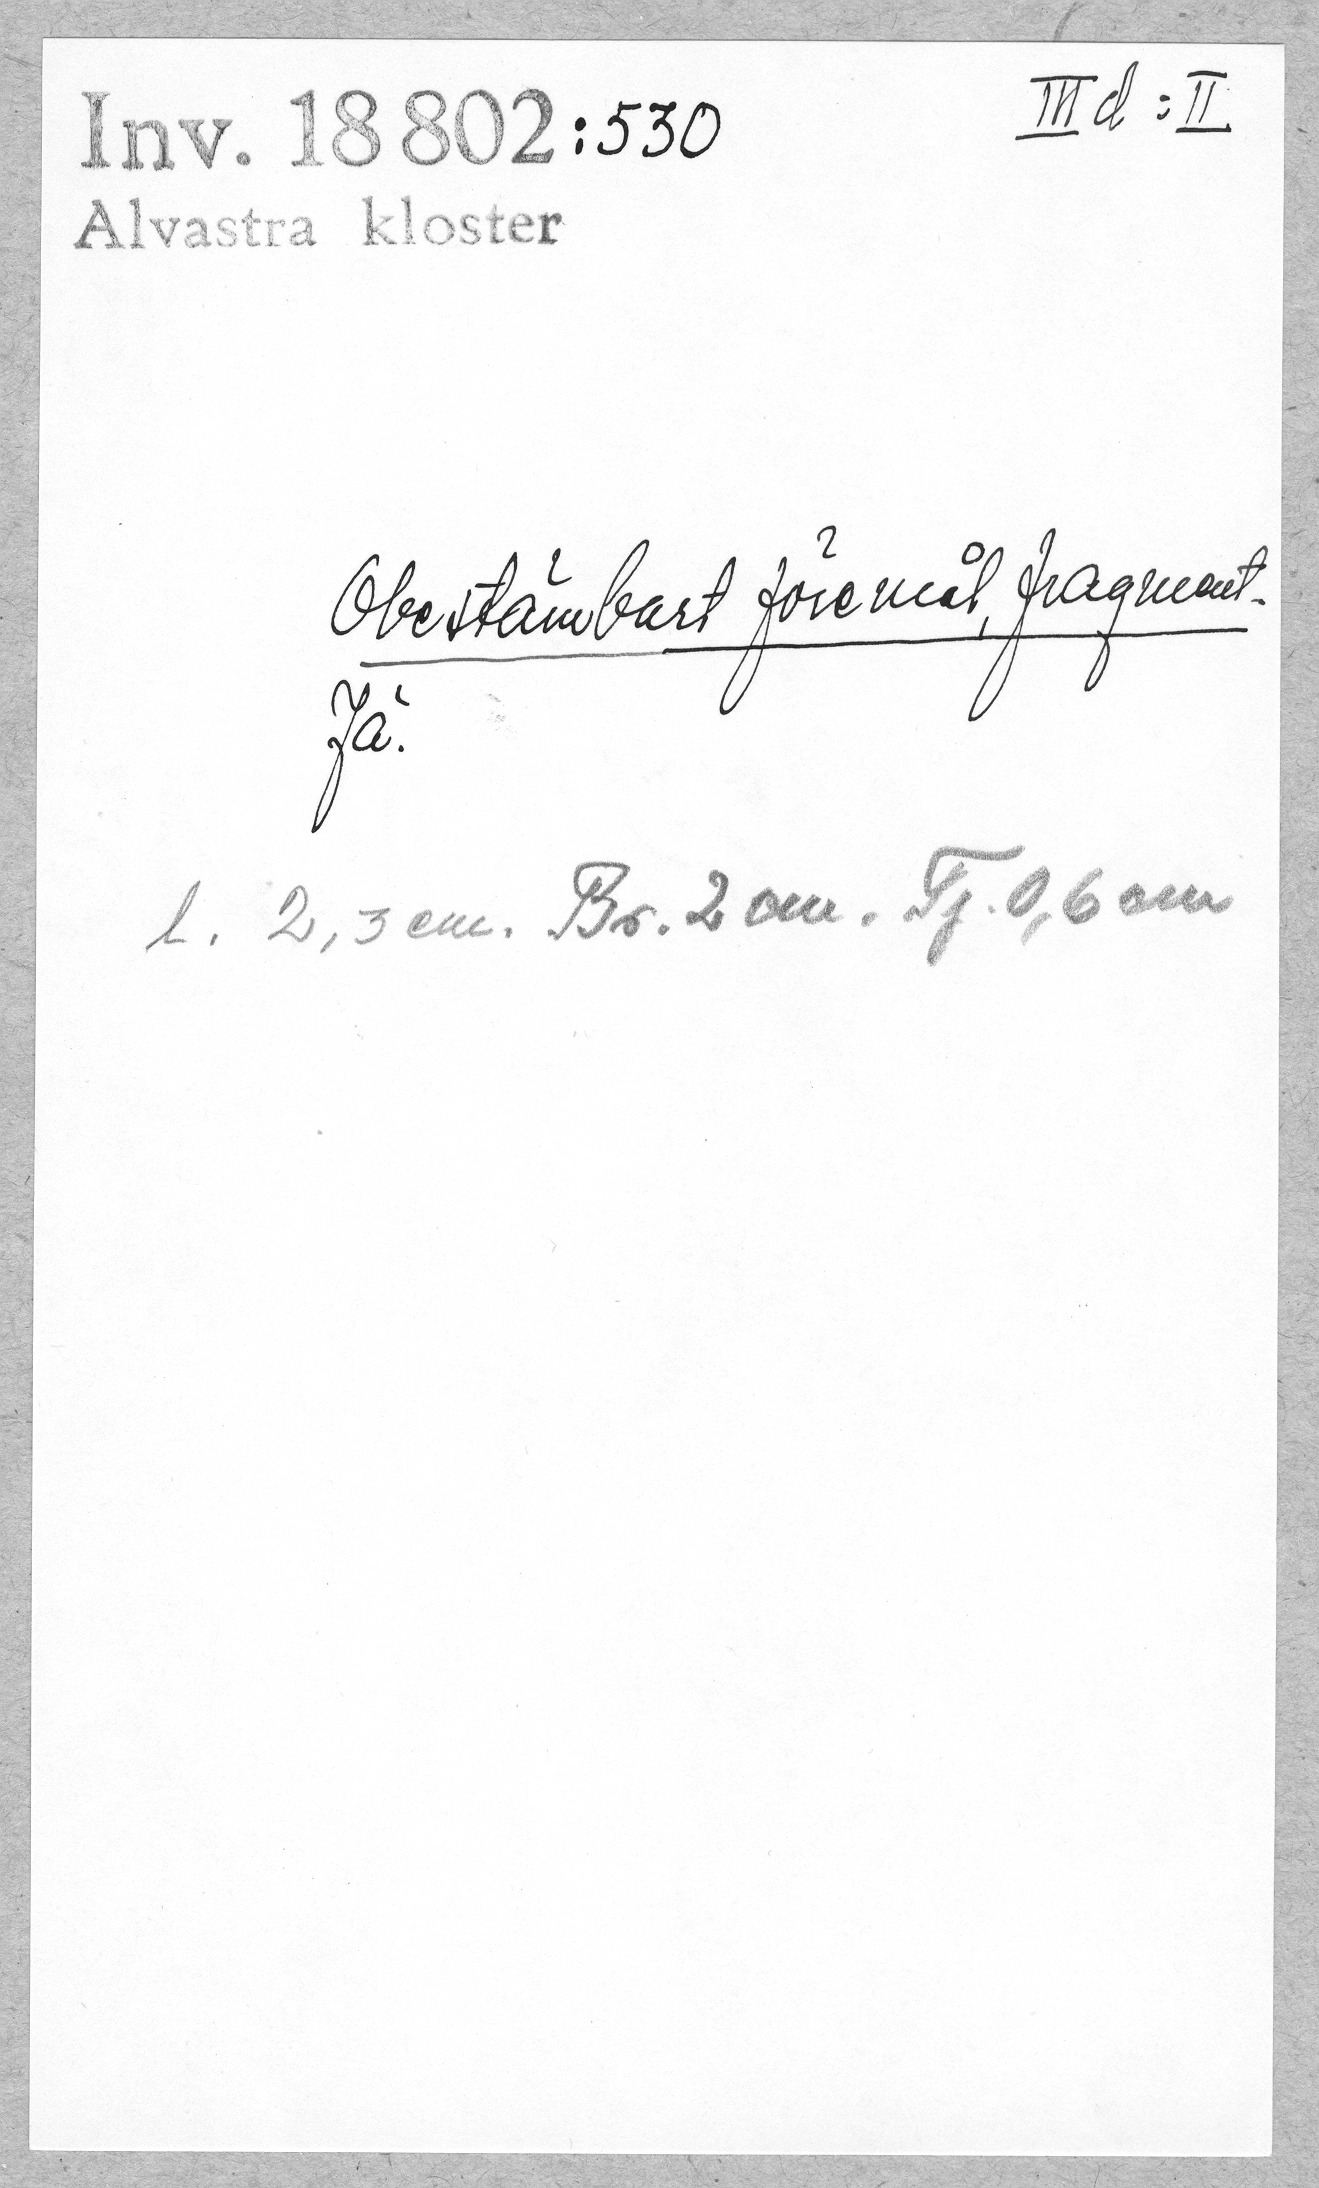 Inv. 18 802:530
III d : II
Alvastra kloster
Obestämbart föremål, fragment.
Jä.
l. 2,3 cm. Br. 2 cm. Tj. 0,6 cm